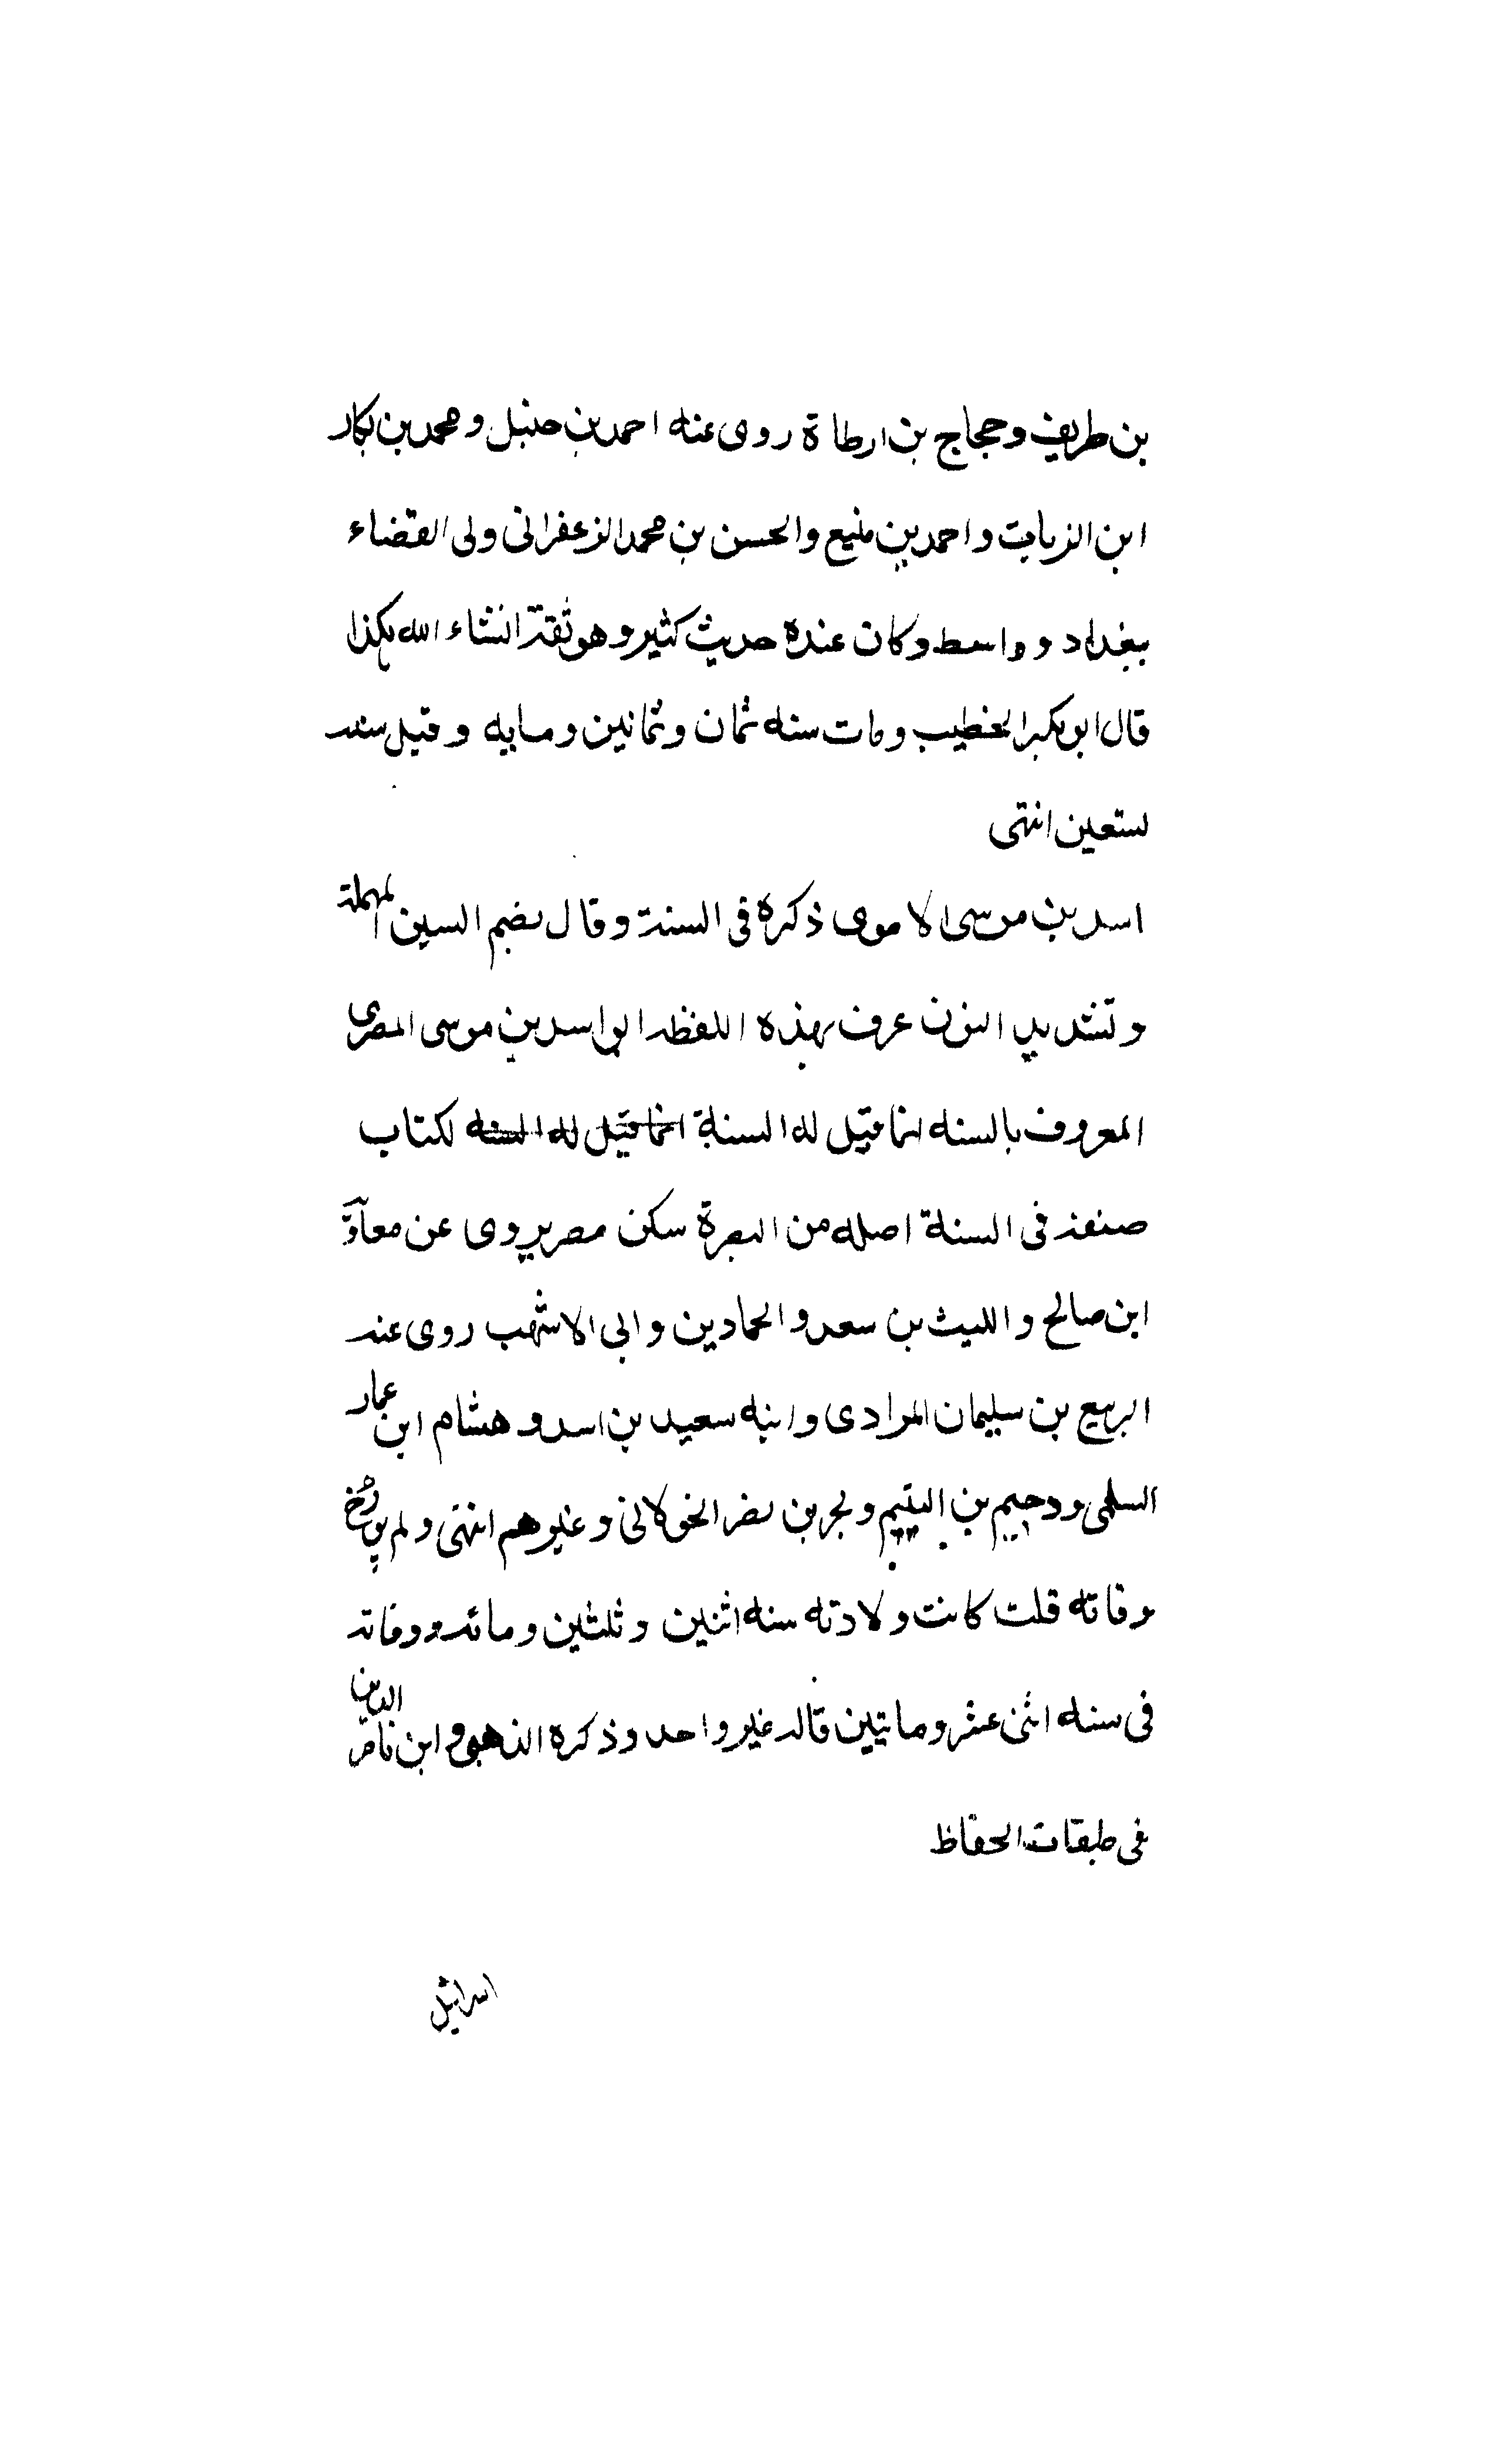 بن طريف وحجاج بن ارطاة روى عنه احمد بن حنبل ومحمد بن بكار
ابن الزيات واحمد بن منيع والحسن بن محمد الزعفرانى ولى القضاء
ببغداد وواسط وكان عنده حديث كثير وهو ثقة انشاء الله هكذا
قال ابو بكر الخطيب ومات سنه ثمان وثمانين ومايه وقيل سنه
تسعين انتهى
اسد بن موسى الاموى ذكره فى السنة وقال بضم السين المهملة
وتشديد النون عرف بهذه اللفظه ابو اسد بن موسى المصرى
المعروف بالسنه انما قيل له السنة انما قيل له السنه لكتاب
صنفه فى السنة اصله من البصرة سكن مصر يروى عن معاوية
ابن صالح والليث بن سعد والحمادين وابى الاشهب روى عنه
الربيع بن سليمان المرادى وابنه سعيد بن اسد وهشام ابن عمار
السلمى ودحيم بن اليتيم وبحر بن نصر الخولانى وغيرهم انتهى ولم يورخ
وفاته قلت كانت ولادته سنه اثنين وثلثين ومائه ووفاته
فى سنه اثنى عشر وماتيين قاله غير واحد وذكره الذهبى وابن ناصر الدين
فى طبقات الحفاظ
اسرائيل